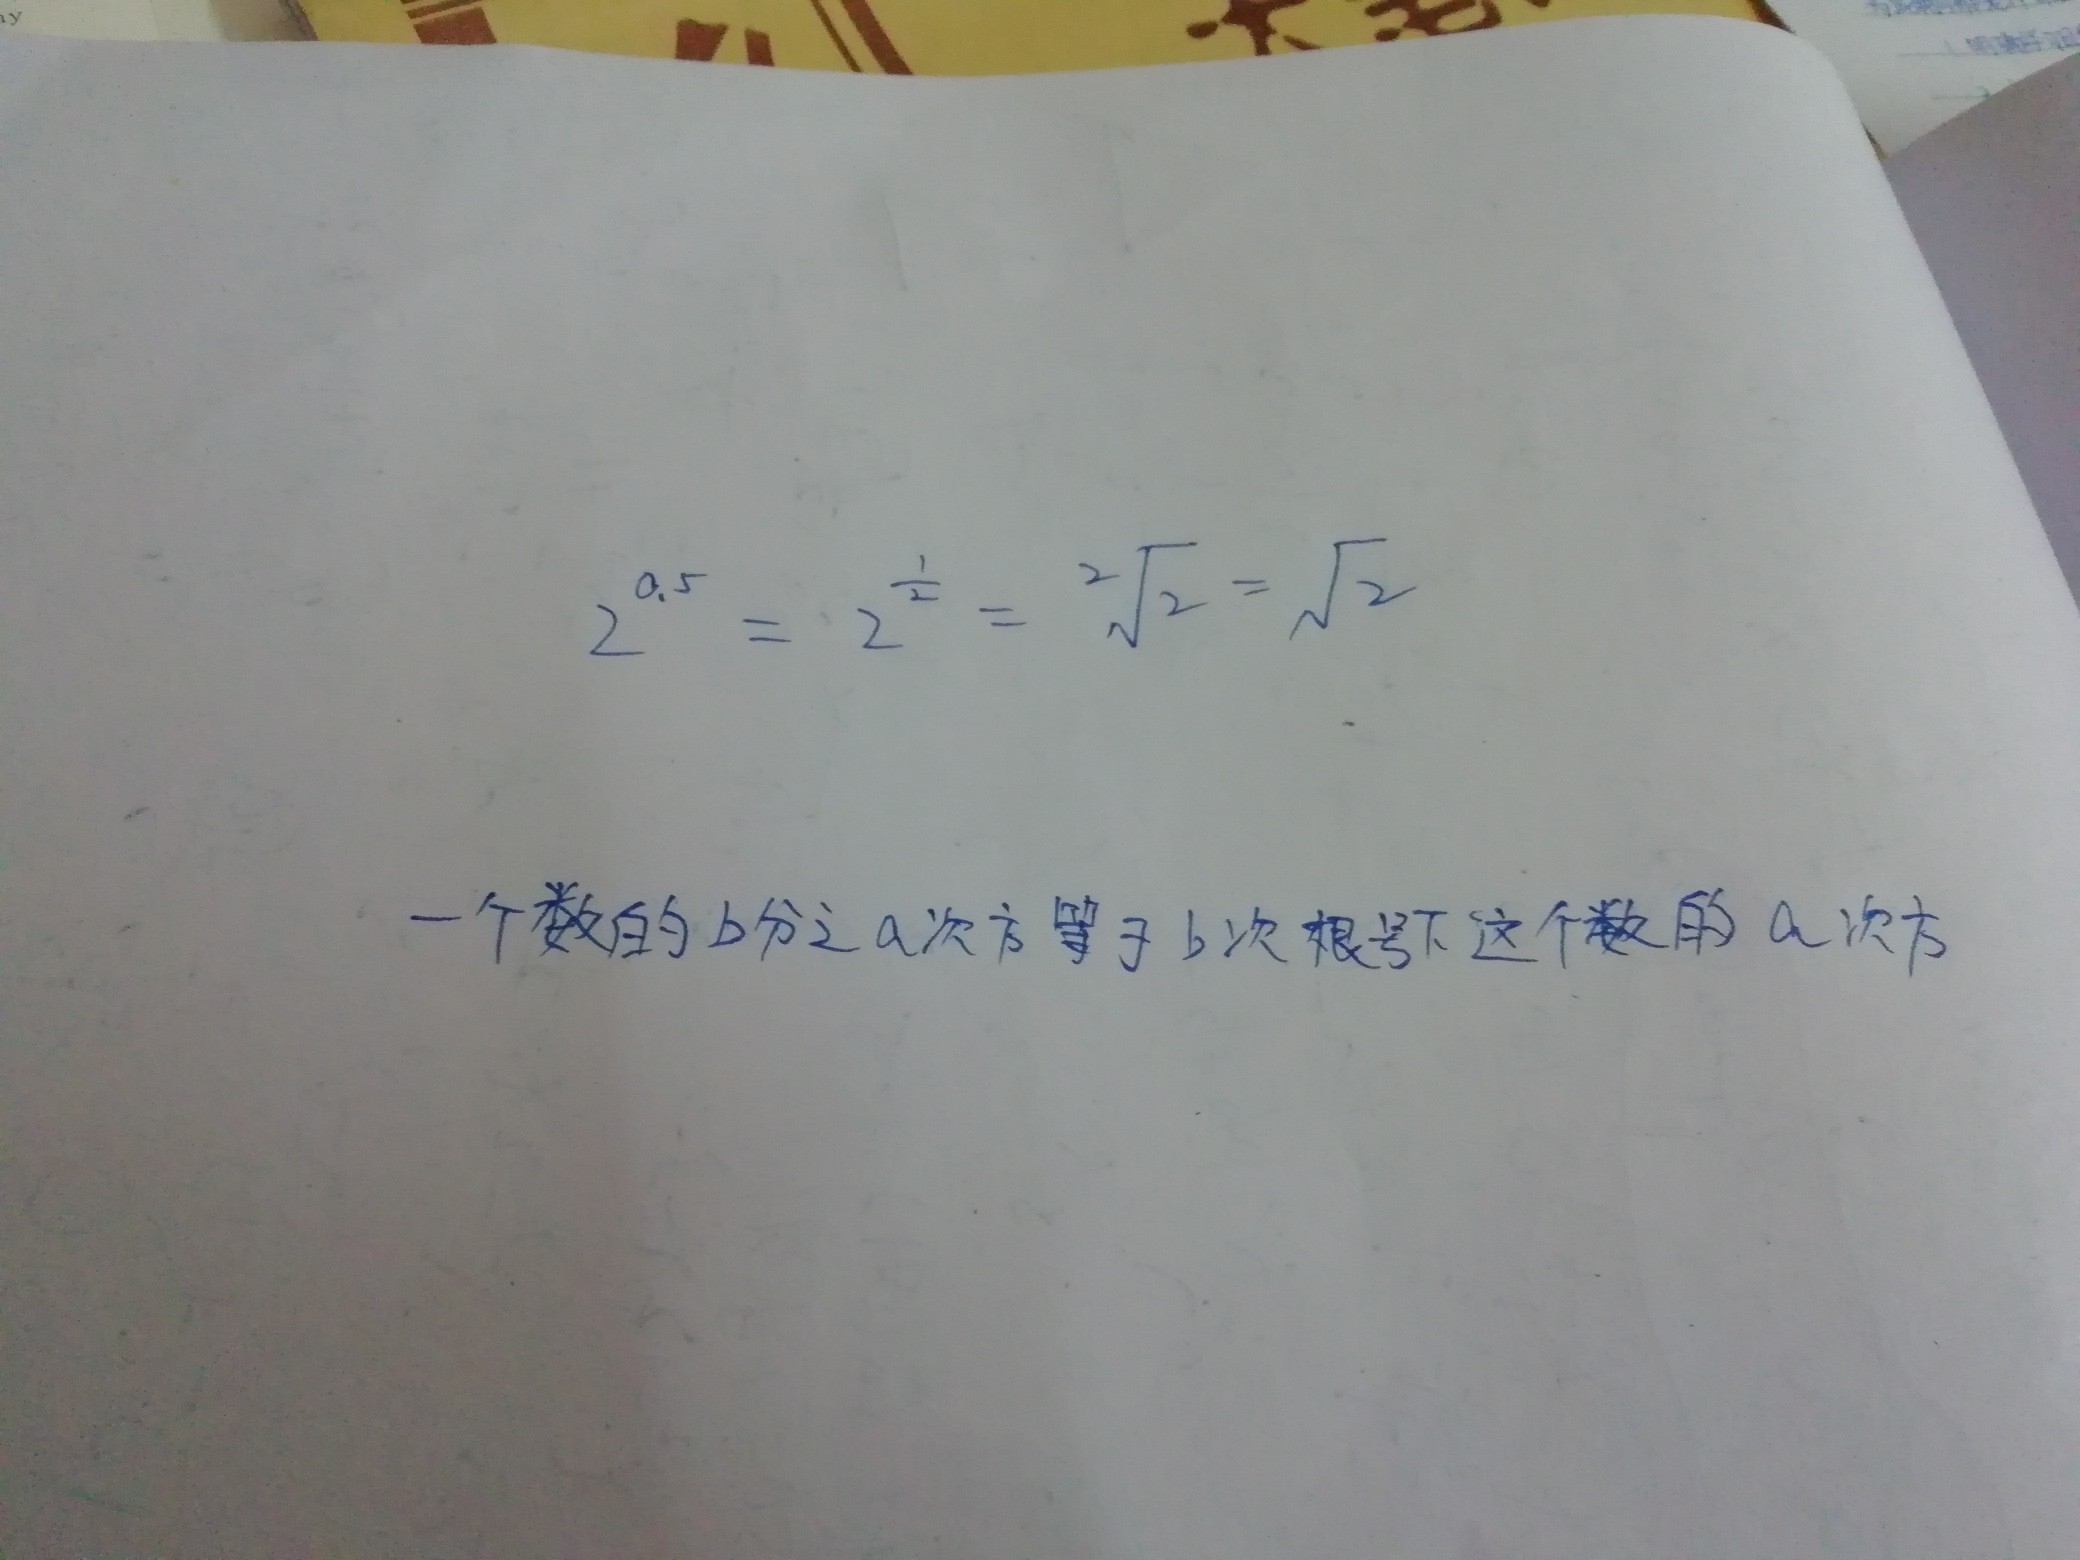 2^0.5 = 2^1/2 = ²√2 = √2
一个数的b分之a次方等于b次根号下这个数的a次方